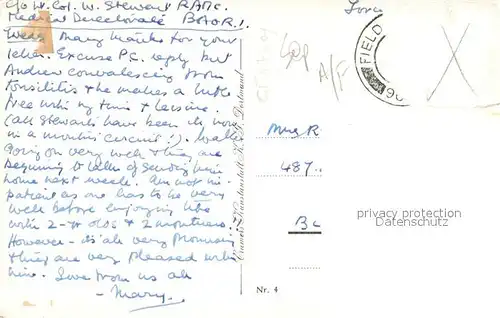 c/o Lt. Col. W. Stewart RAMC.
Medical Directorate B.A.O.R.1.
Weds. Many thanks for your
letter. Excuse P.C. reply but
Andrew convalescing from
tonsilitis & he makes a little
free with my time & leisure.
(all Stewarts have been
in a month's circuit!).
going on very well & they are
beginning to talk of sending him
home next week. Am not im-
patient as one has to be very
well before enjoying life
with 2-yr olds & 2 mothers!
However - it's all very promising
& they are very pleased with
him. Love from us all
- Mary.
Cramers Kunstanstalt K. G. Dortmund
Nr. 4
Forces
FIELD
90
A/F
Mrs R
487..
Bc
privacy protection
Datenschutz